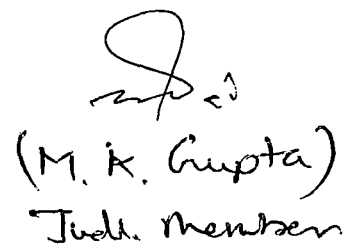 (M. K. Gupta)
Judl. Member